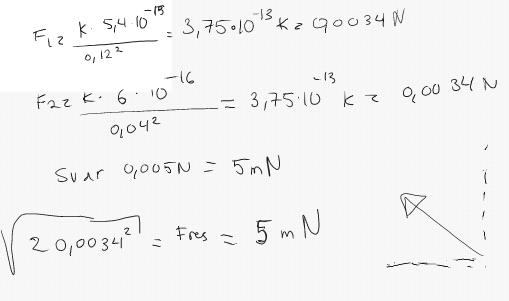 F1= K · 5,4·10^-15 / 0,12² = 3,75·10^-13 K = 0,0034 N
F2= K · 6 · 10^-16 / 0,04² = 3,75·10^-13 K = 0,0034 N
Svar 0,005N = 5mN
√2 0,0034² = Fres = 5 mN